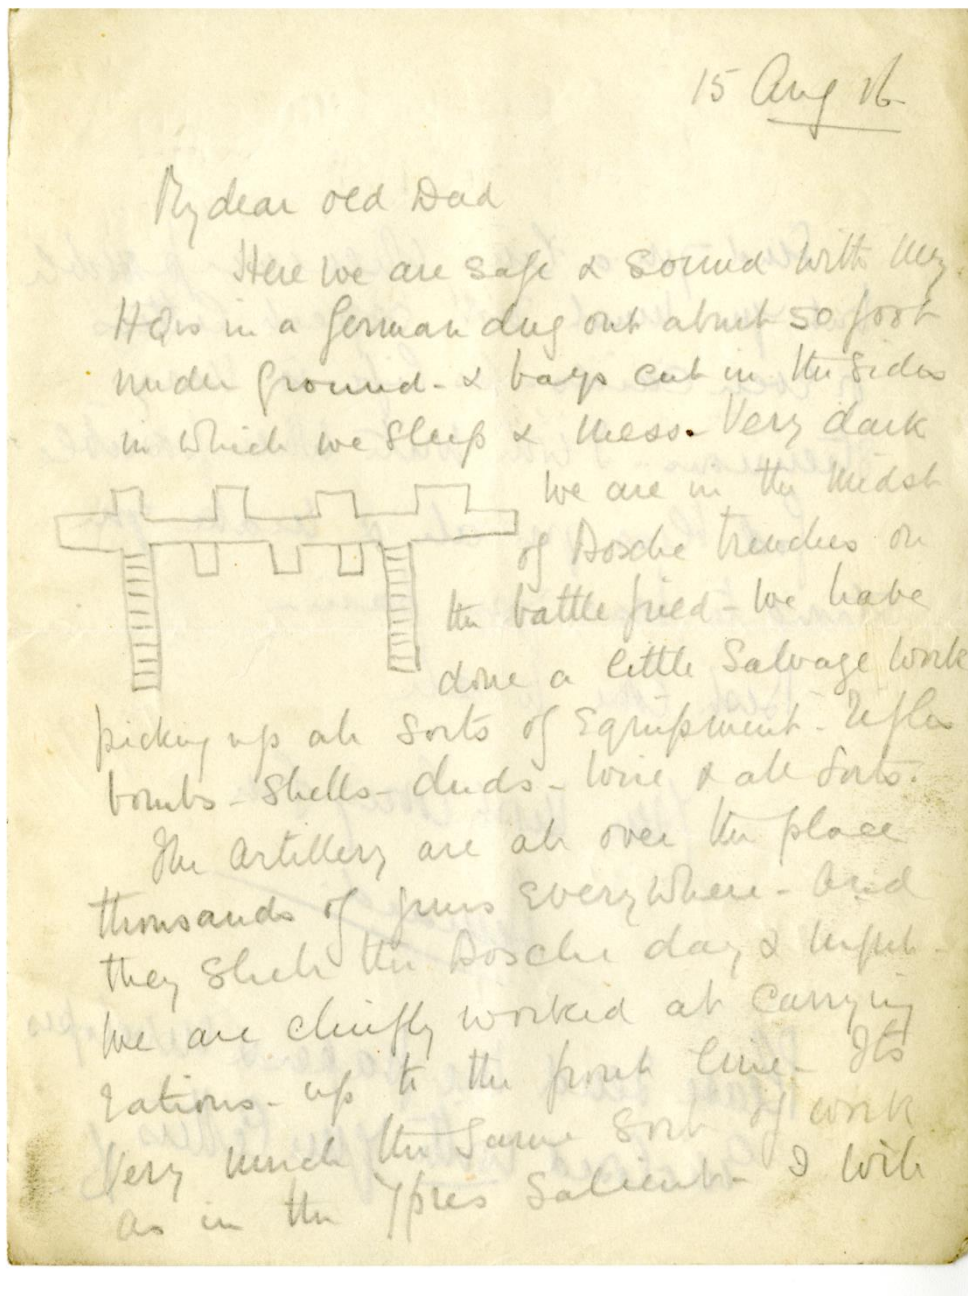 15 Aug 16
My dear old Dad
Here we are safe & sound with my
HQrs in a German dug out about 50 foot
under ground - & bays cut in the sides
in which we sleep & mess. Very dark
We are in the midst
of Bosche trenches on
the battle field - We have
done a little Salvage Work
picking up all sorts of Equipment - Rifles
bombs - shells - duds - wire & all sorts.
The Artillery are all over the place
thousands of guns everywhere - And
they shell the Bosche day & night -
We are chiefly worked at Carrying
rations - up to the front line - Its
Very much the same sort of work
as in the Ypres Salient - I will